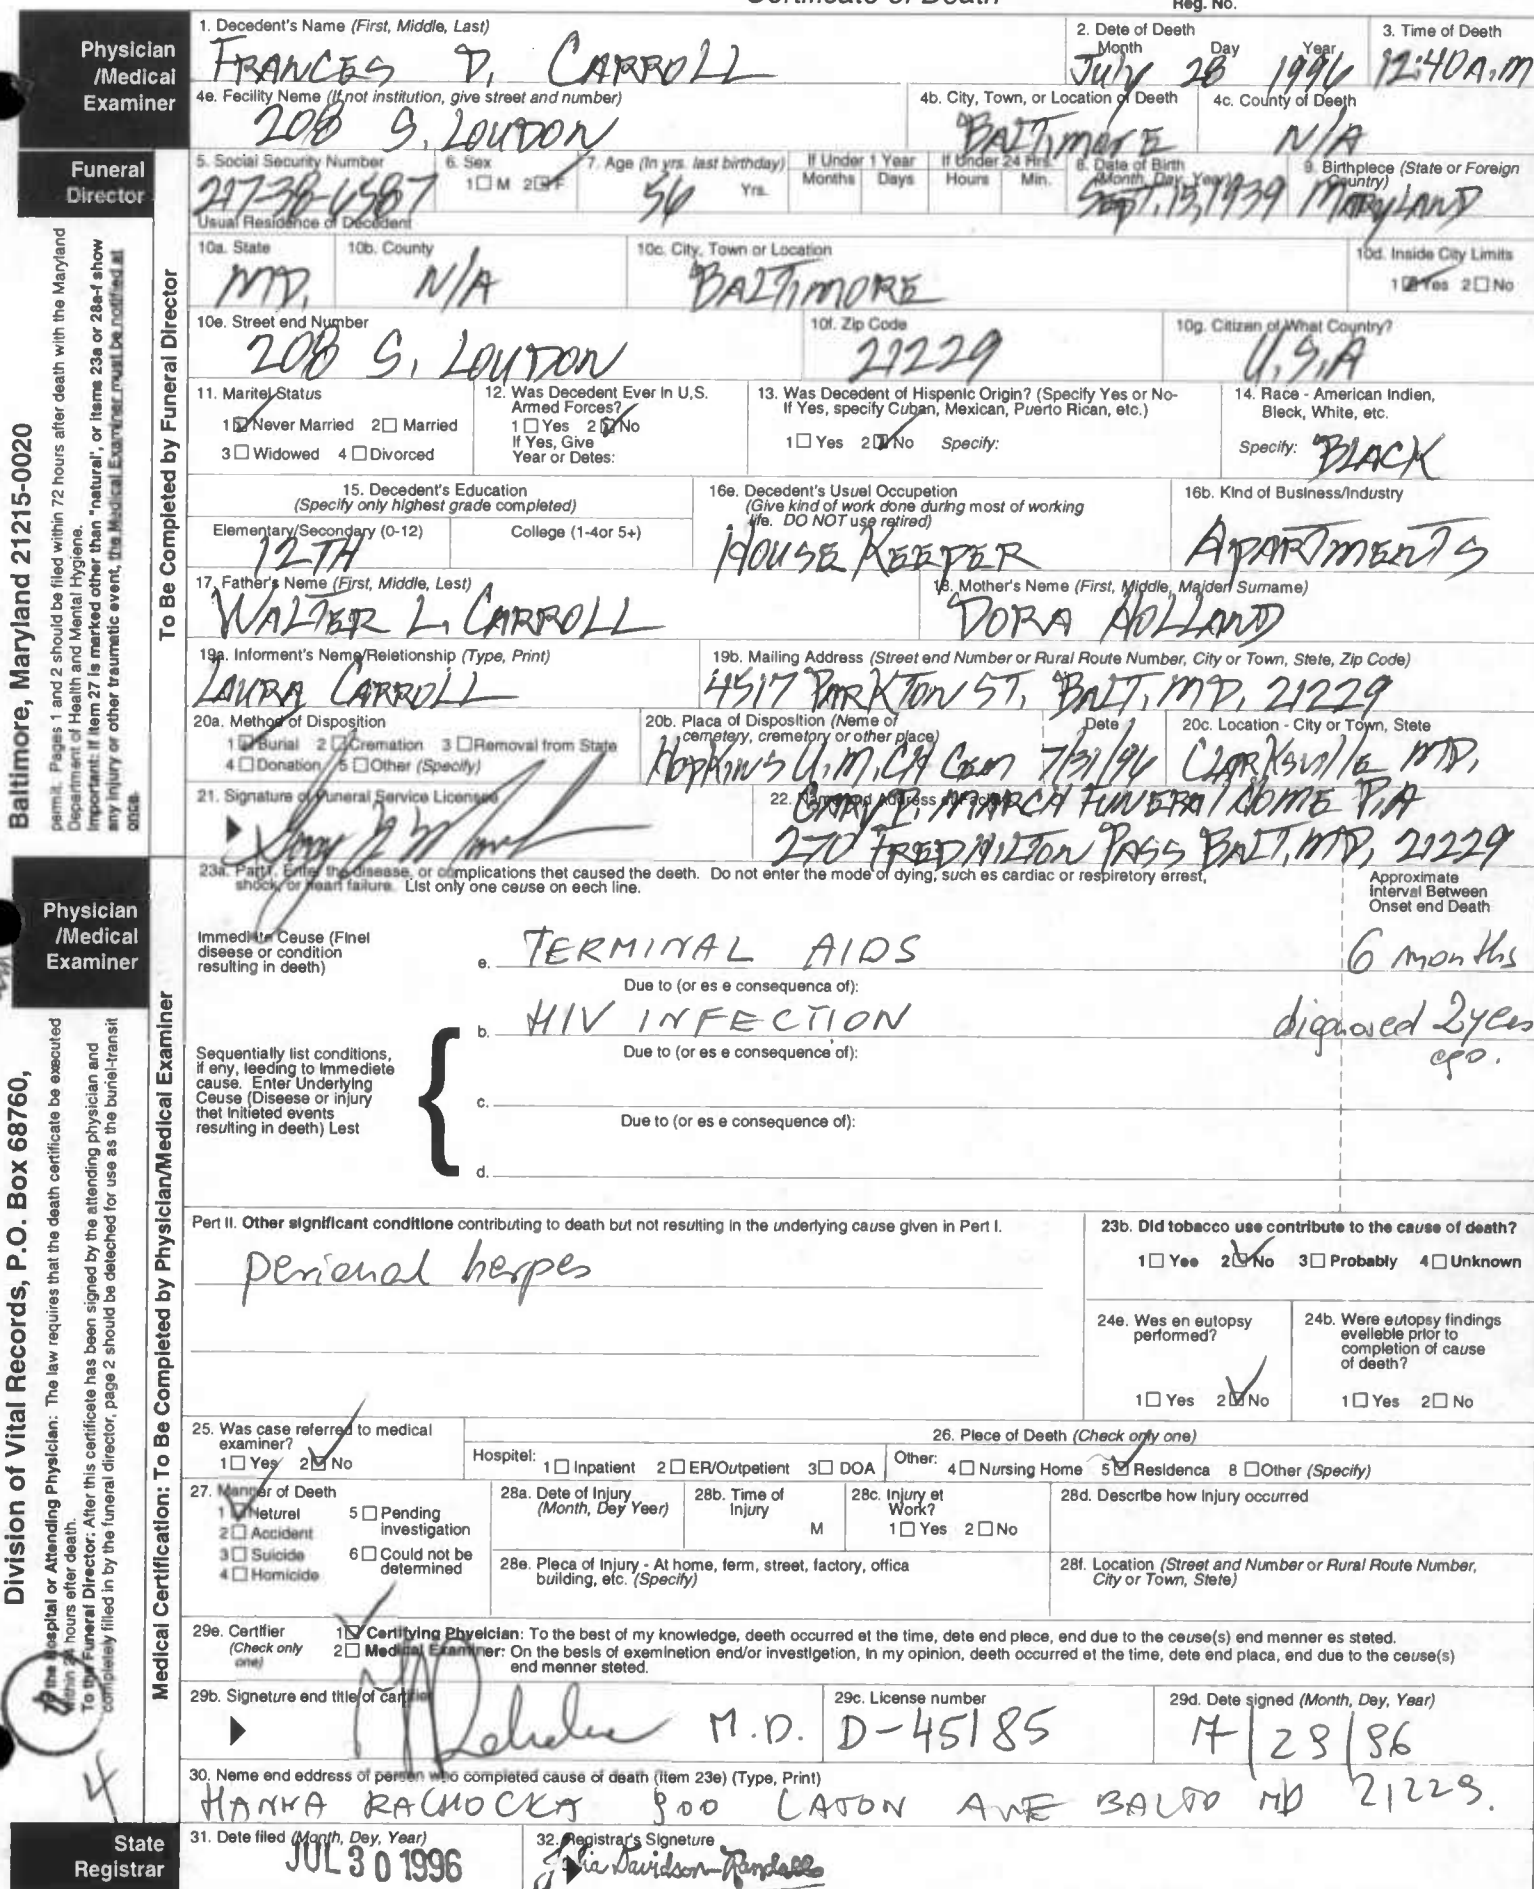 Certificate of Death
Reg. No.
Physician
/Medical
Examiner
1. Decedent's Name (First, Middle, Last)
FRANCES D. CARROLL
2. Date of Death
Month Day Year
July 28 1996
3. Time of Death
12:40 A.M
4e. Fecility Name (If not institution, give street and number)
208 S. LOUDON
4b. City, Town, or Location of Deeth
BALTIMORE
4c. County of Deeth
N/A
Funeral
Director
5. Social Security Number
217-38-6587
6. Sex
1☐ M 2☑ F
7. Age (In yrs. last birthday)
56 Yrs.
If Under 1 Year
Months Days
If Under 24 Hrs.
Hours Min.
8. Date of Birth
(Month, Day, Year)
SEPT. 15, 1939
9. Birthplece (State or Foreign
Country)
MARYLAND
Usual Residence of Decedent
10a. State
MD.
10b. County
N/A
10c. City, Town or Location
BALTIMORE
10d. Inside City Limits
1☑ Yes 2☐ No
10e. Street end Number
208 S. LOUDON
10f. Zip Code
21229
10g. Citizen of What Country?
U.S.A
11. Maritel Status
1☑ Never Married 2☐ Married
3☐ Widowed 4☐ Divorced
12. Was Decedent Ever In U.S.
Armed Forces?
1☐ Yes 2☑ No
If Yes, Give
Year or Detes:
13. Was Decedent of Hispenic Origin? (Specify Yes or No-
If Yes, specify Cuban, Mexican, Puerto Rican, etc.)
1☐ Yes 2☑ No Specify:
14. Race - American Indien,
Bleck, White, etc.
Specify: BLACK
15. Decedent's Education
(Specify only highest grade completed)
Elementary/Secondary (0-12)
12TH
College (1-4or 5+)
16e. Decedent's Usuel Occupetion
(Give kind of work done during most of working
life. DO NOT use retired)
HOUSE KEEPER
16b. Kind of Business/Industry
APARTMENTS
17. Father's Name (First, Middle, Lest)
WALTER L. CARROLL
18. Mother's Name (First, Middle, Maiden Surname)
DORA HOLLAND
19a. Informent's Neme/Relationship (Type, Print)
LAURA CARROLL
19b. Mailing Address (Street end Number or Rural Route Number, City or Town, Stete, Zip Code)
4517 PARKTON ST. BALT. MD. 21229
20a. Method of Disposition
1☑ Burial 2☐ Cremation 3☐ Removal from State
4☐ Donation 5☐ Other (Specify)
20b. Placa of Disposition (Neme of
cemetery, cremetory or other place)
HOPKINS U.M. CH Cem
Date
7/31/96
20c. Location - City or Town, Stete
CLARKSVILLE MD.
21. Signature of Funeral Service Licensee
22. Name and Address of Facility
GARY P. MARCH FUNERAL HOME P.A
270 FREDHILTON PASS BALT. MD. 21229
To Be Completed by Funeral Director
Baltimore, Maryland 21215-0020
permit. Pages 1 and 2 should be filed within 72 hours after death with the Maryland
Department of Health and Mental Hygiene.
Important: If item 27 is marked other than "natural", or items 23a or 28a-f show
any injury or other traumatic event, the Medical Examiner must be notified at
once.
Physician
/Medical
Examiner
23a. Part I. Enter the disease, or complications thet caused the deeth. Do not enter the mode of dying, such es cardiac or respiretory errest,
shock, or heart failure. List only one ceuse on eech line.
Approximate
Interval Between
Onset end Death
Immediate Ceuse (Finel
disease or condition
resulting in deeth)
e. TERMINAL AIDS
6 months
Due to (or es e consequenca of):
b. HIV INFECTION
dignosed 2 yeas
ego.
Due to (or es e consequence of):
Sequentially list conditions,
if eny, leeding to Immediete
cause. Enter Underlying
Ceuse (Diseese or injury
thet Initieted events
resulting in deeth) Lest
c.
Due to (or es e consequence of):
d.
Part II. Other significant conditione contributing to death but not resulting in the underlying cause given in Part I.
perianal herpes
23b. Did tobacco use contribute to the cause of death?
1☐ Yee 2☑ No 3☐ Probably 4☐ Unknown
24e. Wes en eutopsy
performed?
1☐ Yes 2☑ No
24b. Were eutopsy findings
eveileble prior to
completion of cause
of deeth?
1☐ Yes 2☐ No
25. Was case referred to medical
examiner?
1☐ Yes 2☑ No
26. Plece of Death (Check only one)
Hospitel: 1☐ Inpatient 2☐ ER/Outpetient 3☐ DOA
Other: 4☐ Nursing Home 5☑ Residenca 8☐ Other (Specify)
27. Manner of Deeth
1☑ Neturel
2☐ Accident
3☐ Suicide
4☐ Homicide
5☐ Pending
investigation
6☐ Could not be
determined
28a. Date of Injury
(Month, Dey Year)
28b. Time of
Injury
M
28c. Injury et
Work?
1☐ Yes 2☐ No
28d. Describe how Injury occurred
28e. Pleca of Injury - At home, ferm, street, factory, offica
building, etc. (Specify)
28f. Location (Street and Number or Rural Route Number,
City or Town, Stete)
29e. Certifier
(Check only
one)
1☑ Certifying Phyeician: To the best of my knowledge, deeth occurred et the time, dete end plece, end due to the ceuse(s) end menner es steted.
2☐ Medical Examiner: On the besis of exeminetion end/or investigetion, in my opinion, deeth occurred et the time, dete end placa, end due to the ceuse(s)
end menner steted.
29b. Signeture end title of certifier
M.D.
29c. License number
D-45185
29d. Dete signed (Month, Dey, Year)
7/29/96
30. Neme end eddress of person who completed cause of death (Item 23e) (Type, Print)
HANNA RACHOCKA 900 CATON AVE BALTO MD 21229.
Medical Certification: To Be Completed by Physician/Medical Examiner
Division of Vital Records, P.O. Box 68760,
To the Hospital or Attending Physician: The law requires that the death certificate be executed
within 24 hours efter death.
To the Funeral Director: After this certificete has been signed by the attending physician and
completely filled in by the funeral director, page 2 should be deteched for use as the buriel-transit
4
State
Registrar
31. Date filed (Month, Dey, Year)
JUL 30 1996
32. Registrar's Signeture
Julia Davidson-Randall